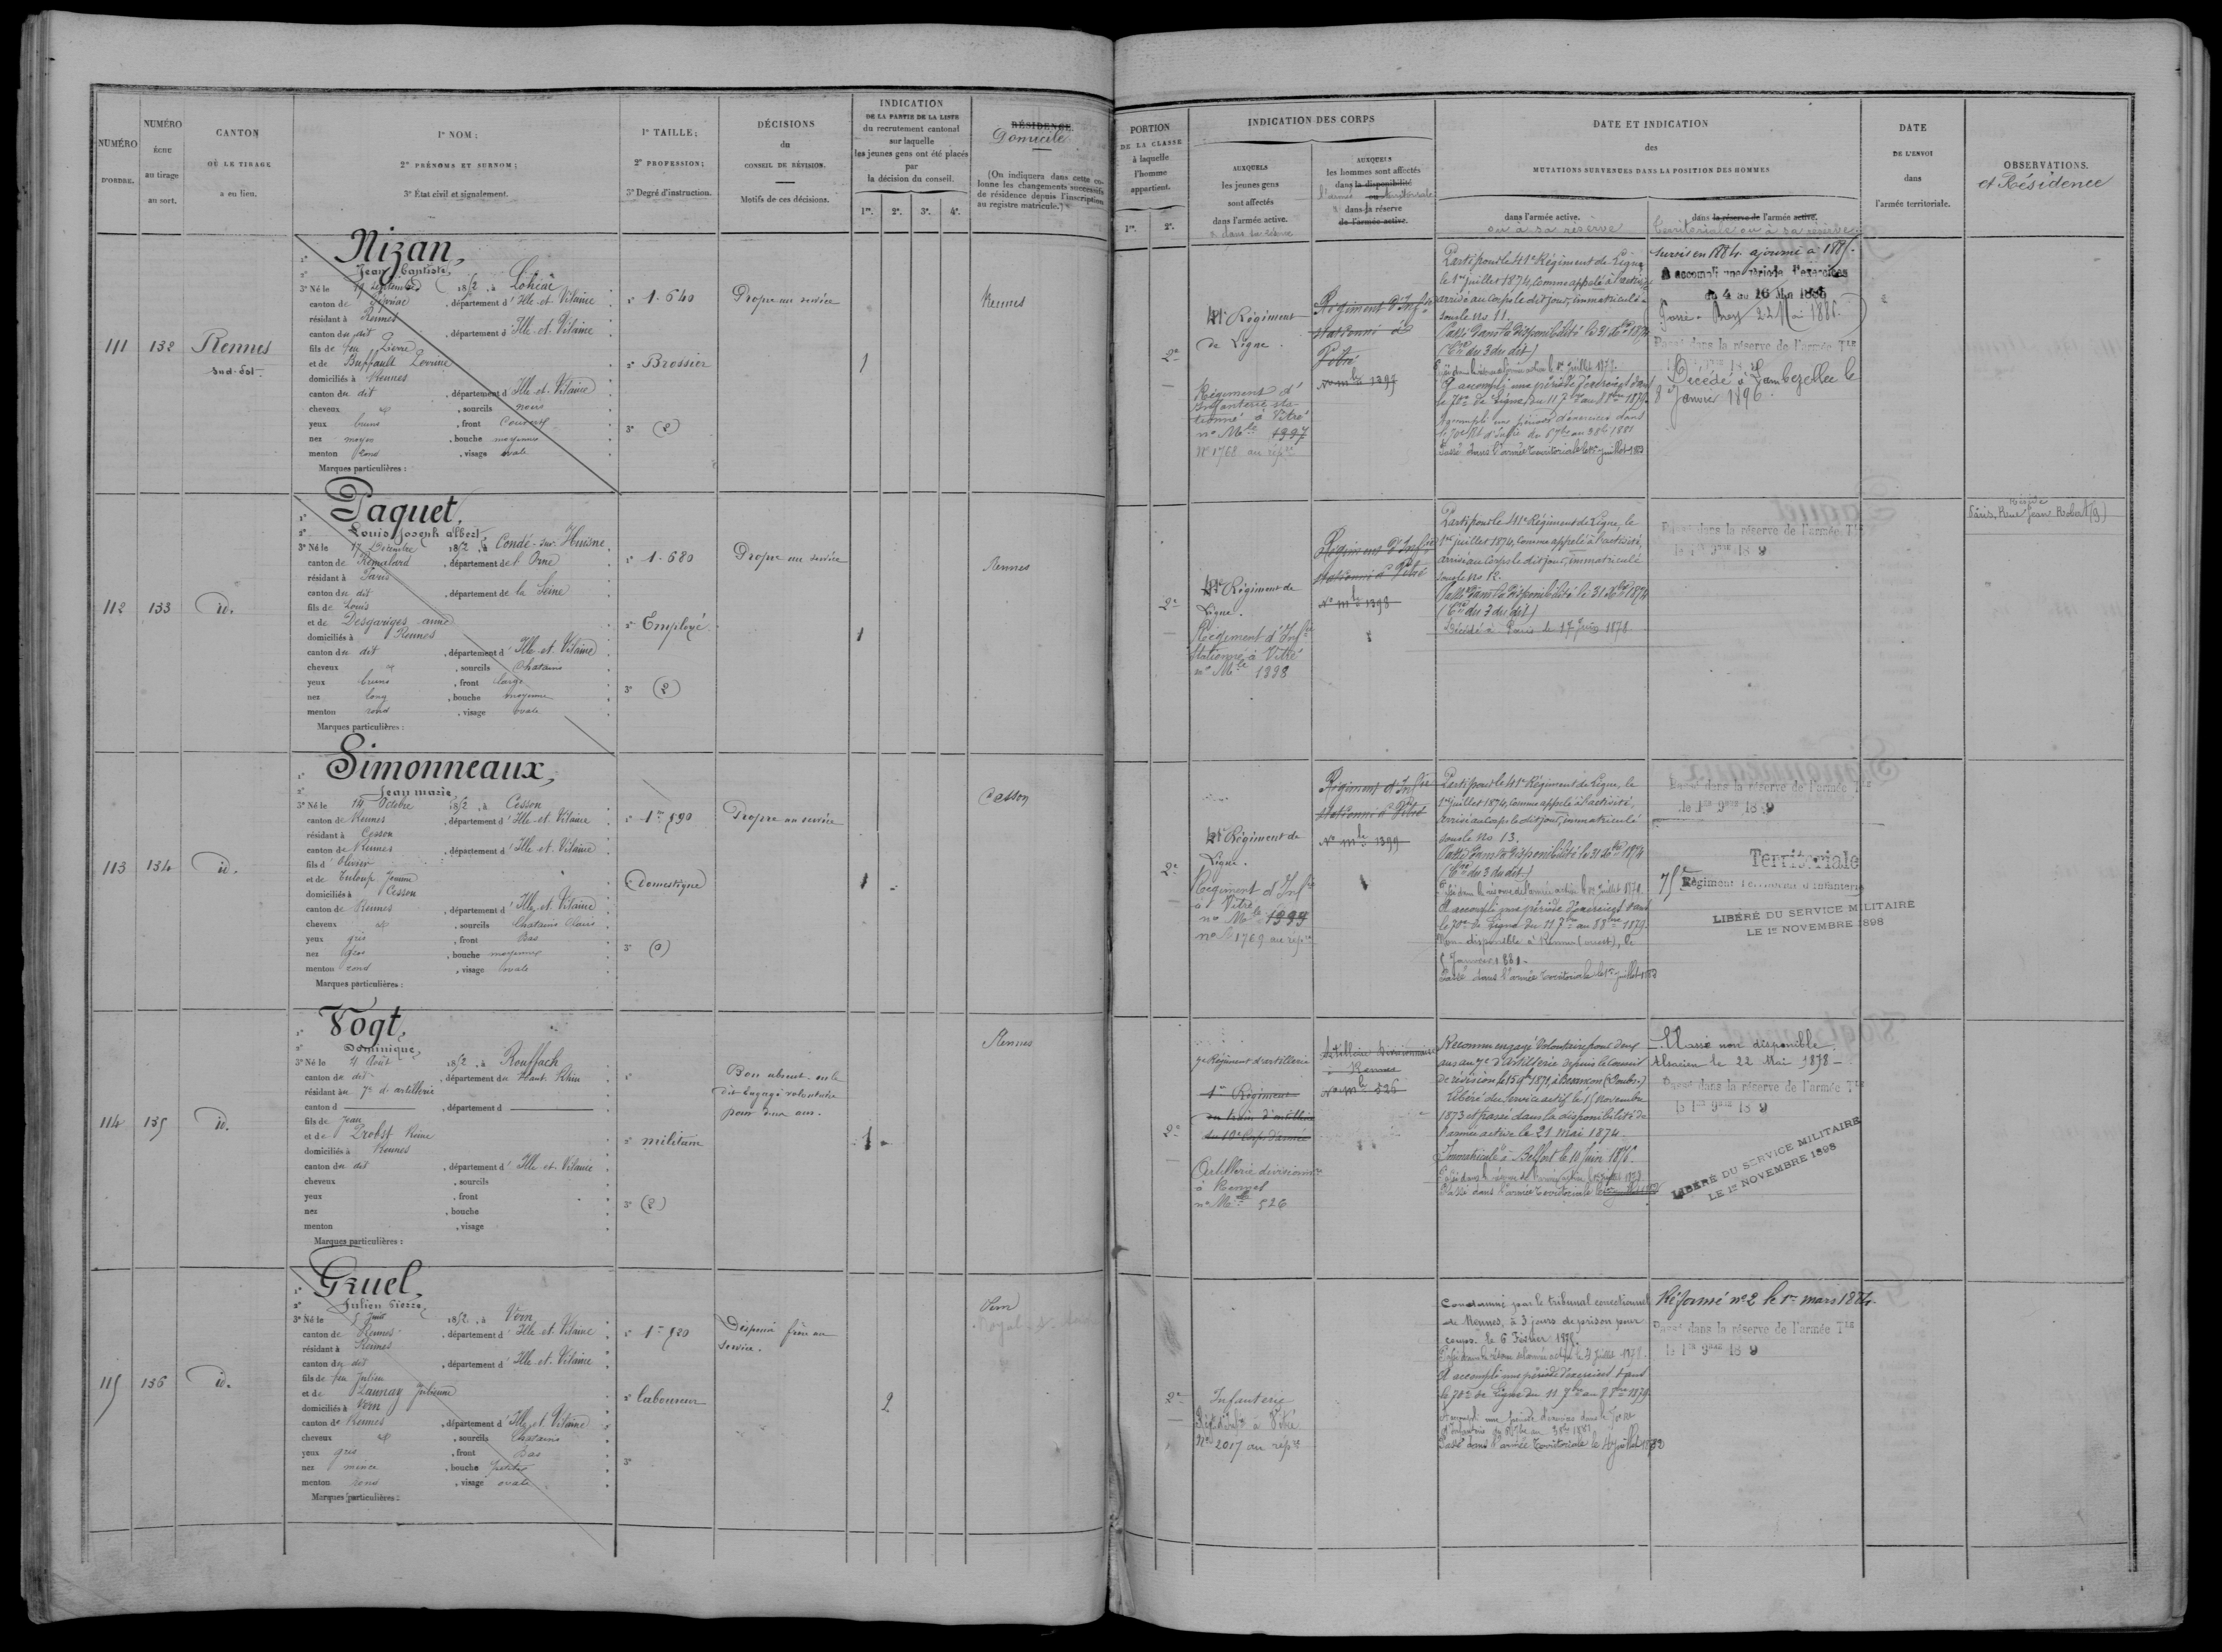 NUMÉRO
D'ORDRE.
NUMÉRO
ÉCHU
au tirage
au sort.
CANTON
OÙ LE TIRAGE
a eu lieu.
1º NOM;
2º PRÉNOMS ET SURNOM;
3º État civil et signalement.
1º TAILLE;
2º PROFESSION;
3º Degré d'instruction.
DÉCISIONS
du
CONSEIL DE RÉVISION.
Motifs de ces décisions.
INDICATION
DE LA PARTIE DE LA LISTE
du recrutement cantonal
sur laquelle
les jeunes gens ont été placés
par
la décision du conseil.
1re. 2e. 3e. 4e.
RÉSIDENCE.
Domicile
(On indiquera dans cette co-
lonne les changements successifs
de résidence depuis l'inscription
au registre matricule.)
PORTION
DE LA CLASSE
à laquelle
l'homme
appartient.
1re. 2e.
INDICATION DES CORPS
AUXQUELS
les jeunes gens
sont affectés
dans l'armée active.
AUXQUELS
les hommes sont affectés
dans la disponibilité
ou
dans la réserve
de l'armée active.
DATE ET INDICATION
des
MUTATIONS SURVENUES DANS LA POSITION DES HOMMES
dans l'armée active.
ou à sa réserve
dans la réserve de l'armée active.
Territoriale ou à sa réserve
DATE
DE L'ENVOI
dans
l'armée territoriale.
OBSERVATIONS.
et Résidence
111
132
Rennes
Sud-Est
1º Nizan,
2º Jean Baptiste,
3º Né le 19 Septembre 1852, à Lohéac
canton de , département d'Ille-et-Vilaine
résidant à Rennes
canton du dit , département d'Ille-et-Vilaine
fils de feu Pierre
et de Buffault Perrine
domiciliés à Rennes
canton du dit , département d'Ille-et-Vilaine
cheveux et , sourcils noirs
yeux bruns , front couvert
nez moyen , bouche moyenne
menton rond , visage ovale
Marques particulières :
1º 1.640
2º Brossier
3º (2)
Propre au service
1
Rennes
2e
41e Régiment
de Ligne.
Régiment d'
Infanterie sta-
tionné à Vitré
nº Mle 1397
Nº 1768 au rép.re
Régiment d'Inf.ie
stationné à
Vitré
Nº mle 1397
Parti pour le 41e Régiment de Ligne
le 1er juillet 1874, comme appelé à l'activité
arrivé au corps le dit jour, immatriculé
sous le No 11.
Passé dans la disponibilité le 31 Xbre 1874
(Cre du 3 du dit)
Passé dans la réserve de l'armée active le 1er Juillet 1878.
A accompli une période d'exercices dans
le 70me de Ligne du 11 7bre au 8 8bre 1879.
A accompli une période d'exercices dans
le 70e Rt d'Infie du 6 7bre au 3 8bre 1881
Passé dans l'armée territoriale le 1er Juillet 1883
Sursis en 1884. ajourné à 1885.
A accompli une période d'exercices
du 4 au 16 Mai 1885
Passé à Brest 22 Mai 1885.
Passé dans la réserve de l'armée Tle
Décédé à Lambezellec le
8 Janvier 1896.
112
133
id.
1º Paquet,
2º Louis Joseph Albert,
3º Né le 17 Décembre 1852, à Condé-sur-Huisne
canton de Rémalard , département de l'Orne
résidant à Paris
canton du dit , département de la Seine
fils de Louis
et de Desgariges anne
domiciliés à Rennes
canton du dit , département d'Ille-et-Vilaine
cheveux et , sourcils Chatains
yeux bruns , front large
nez long , bouche moyenne
menton rond , visage ovale
Marques particulières :
1º 1.680
2º Employé
3º (2)
Propre au service
1
Rennes
2e
41e Régiment de
Ligne.
Régiment d'Inf.ie
stationné à Vitré
nº Mle 1398
Régiment d'Inf.ie
stationné à Vitré
Nº mle 1398
Parti pour le 41e Régiment de Ligne, le
1er juillet 1874, comme appelé à l'activité,
arrivé au corps le dit jour, immatriculé
sous le No 12.
Passé dans la disponibilité le 31 Xbre 1874
(Cre du 3 du dit)
Décédé à Paris le 17 Juin 1878
Passé dans la réserve de l'armée Tle
le 1er 9bre 18 9
Réside
Paris, Rue Jean Robert (9)
113
134
id.
1º Simonneaux,
2º Jean marie
3º Né le 14 Octobre 1852, à Cesson
canton de Rennes , département d'Ille-et-Vilaine
résidant à Cesson
canton de Rennes , département d'Ille-et-Vilaine
fils d'Olivier
et de Tuloup Jeanne
domiciliés à Cesson
canton de Rennes , département d'Ille-et-Vilaine
cheveux et , sourcils Chatains Clairs
yeux gris , front Bas
nez gros , bouche moyenne
menton rond , visage ovale
Marques particulières :
1º 1m 590
2º Domestique
3º (0)
Propre au service
1
Cesson
2e
41e Régiment de
Ligne.
Régiment d'Inf.ie
à Vitré
nº Mle 1399
nº 1769 au rép.re
Régiment d'Inf.ie
stationné à Vitré
Nº mle 1399
Parti pour le 41e Régiment de Ligne, le
1er juillet 1874, comme appelé à l'activité,
arrivé au corps le dit jour, immatriculé
sous le No 13.
Passé dans la disponibilité le 31 Xbre 1874
(Cre du 3 du dit)
Passé dans la réserve de l'armée active le 1er Juillet 1878.
A accompli une période d'exercices dans
le 70me de Ligne du 11 7bre au 8 8bre 1879.
Non disponible à Rennes (ouest), le
5 Janvier 1881.
Passé dans l'armée territoriale le 1er Juillet 1883
Passé dans la réserve de l'armée Tle
le 1er 9bre 18 9
Territoriale
75e Régiment Territorial d'Infanterie
LIBÉRÉ DU SERVICE MILITAIRE
LE 1er NOVEMBRE 1898
114
135
id.
1º Vogt,
2º Dominique,
3º Né le 4 Août 1852, à Rouffach
canton du dit , département du Haut-Rhin
résidant au 7e d'artillerie
canton d , département d
fils de Jean
et de Probst Reine
domiciliés à Rennes
canton du dit , département d'Ille-et-Vilaine
cheveux , sourcils
yeux , front
nez , bouche
menton , visage
Marques particulières :
2º militaire
3º (2)
Bon absent- en le
dit Engagé volontaire
pour deux ans.
1
Rennes
2e
7e Régiment d'artillerie
1er Régiment
du train d'artillerie
du 10e Corps d'armée
Artillerie divisionre
à Rennes
nº Mle 526
Artillerie divisionnaire
à Rennes
Nº mle 526
Reconnu engagé Volontaire pour deux
ans au 7e d'artillerie depuis le conseil
de révision le 15 9bre 1871, à Besançon (Doubs.)
Libéré du service actif le 15 Novembre
1873 et passé dans la disponibilité de
l'armée active le 21 Mai 1874.
Immatriculé à Belfort le 10 Juin 1876
Passé dans l'armée territoriale le
Classé non disponible
Alsacien le 22 Mai 1878
Passé dans la réserve de l'armée Tle
le 1er 9bre 18 9
LIBÉRÉ DU SERVICE MILITAIRE
LE 1er NOVEMBRE 1898
115
136
id.
1º Gruel,
2º Julien Pierre,
3º Né le 5 Juin 1852, à Vern
canton de Rennes , département d'Ille-et-Vilaine
résidant à Rennes
canton du dit , département d'Ille-et-Vilaine
fils de feu Julien
et de Launay Julienne
domiciliés à Vern
canton de Rennes , département d'Ille-et-Vilaine
cheveux et , sourcils Chatains
yeux gris , front Bas
nez mince , bouche petite
menton rond , visage ovale
Marques particulières :
1º 1m 520
2º laboureur
3º
Dispensé frère au
service.
2
Vern
2e
Infanterie
Régt d'Infie à Vitré
Nº 2017 au rép.re
Condamné par le tribunal correctionnel
de Rennes, à 3 jours de prison pour
coups. le 6 Février 1878.
A accompli une période d'exercices dans
le 70me de Ligne du 11 7bre au 8 8bre 1879.
A accompli une période d'exercices dans le 70me
d'Infanterie du 6 7bre au 3 8bre 1881
Passé dans l'armée territoriale le 1er Juillet 1883
Réformé nº 2 le 1er mars 1884.
Passé dans la réserve de l'armée Tle
le 1er 9bre 18 9